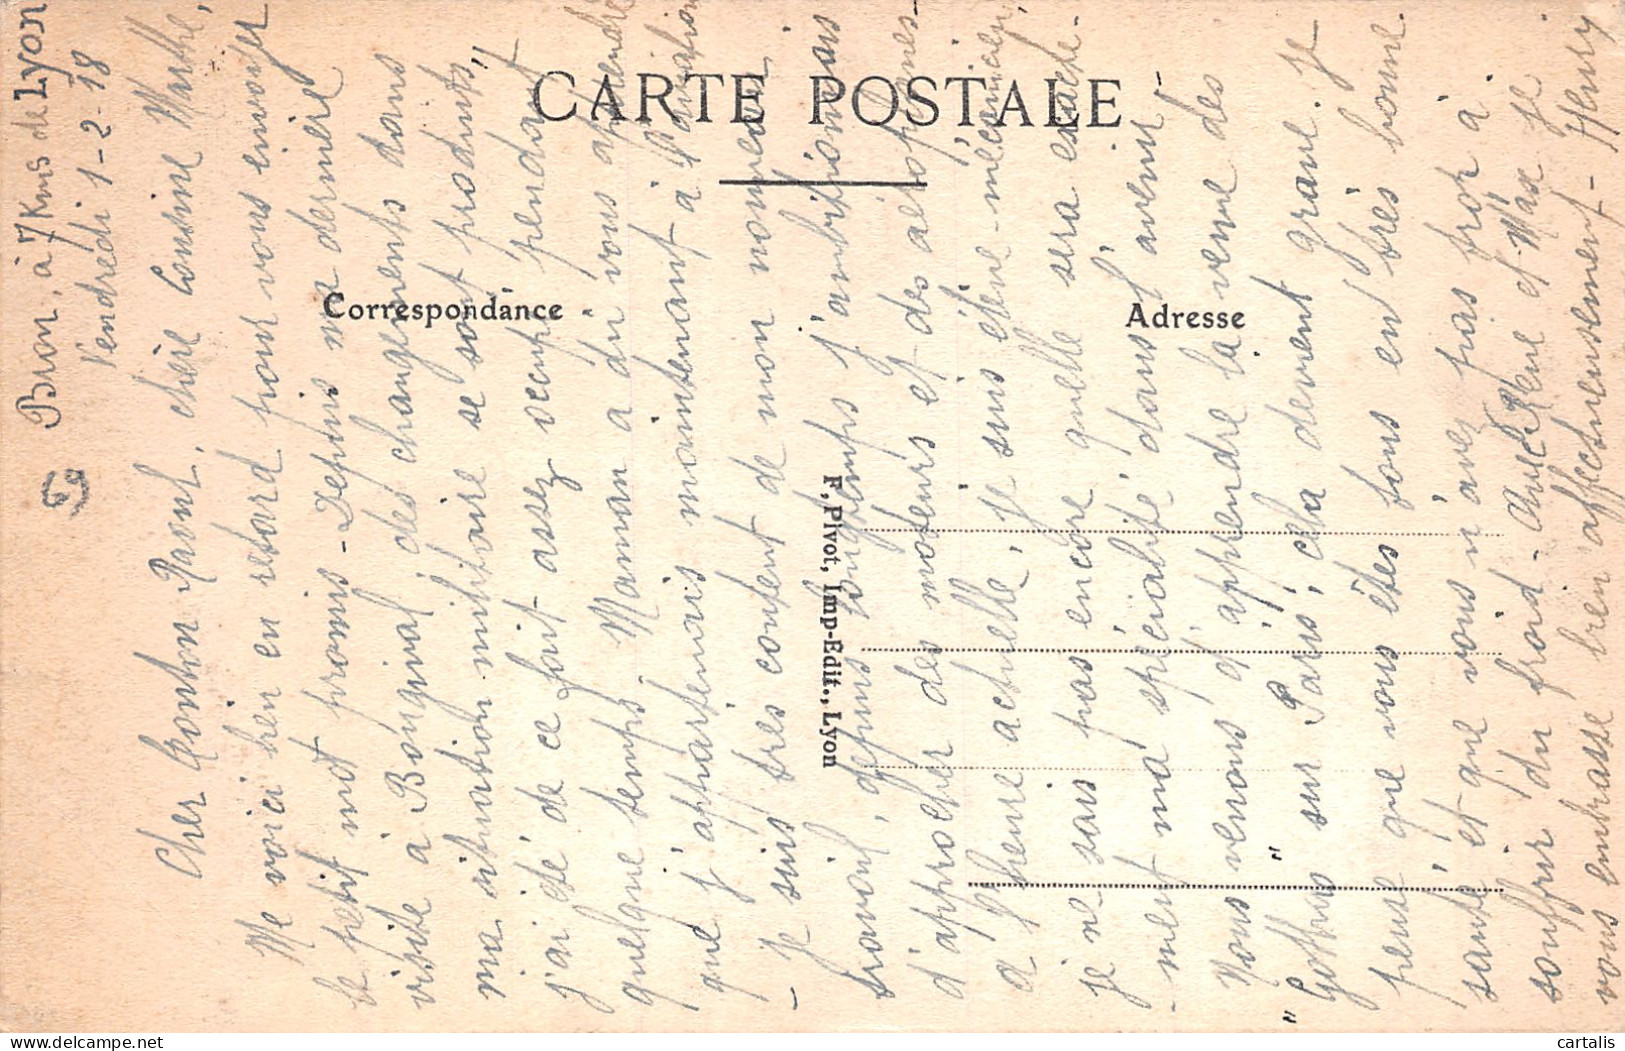 CARTE POSTALE
Correspondance
Adresse
F. Pivot, Imp-Edit., Lyon
Bron, à 7 Kms de Lyon
Vendredi 1-2-18
69
Cher Cousin Raoul, chère Cousine Marthe,
Me voici bien en retard pour vous envoyer
le petit mot promis - Depuis ma dernière
visite à Bougival, des changements dans
ma situation militaire se sont produits,
j'ai été de ce fait assez occupé pendant
quelque temps. Maman a dû vous apprendre
que j'appartenais maintenant à l'aviation
- Je suis très content de mon nouveau
travail, depuis longtemps j'ambitionnais
d'approcher des moteurs et des aéroplanes-
à l'heure actuelle, je suis élève-mécanicien,
je ne sais pas encore quelle sera exacte-
-ment ma spécialité dans l'avenir -
Nous venons d'apprendre la venue des
"Gothas" sur Paris, cela devient grave. Je
pense que vous êtes tous en très bonne
santé et que vous n'avez pas trop à
souffrir du froid - et Max je
vous embrasse bien affectueusement - Henry
cartalis